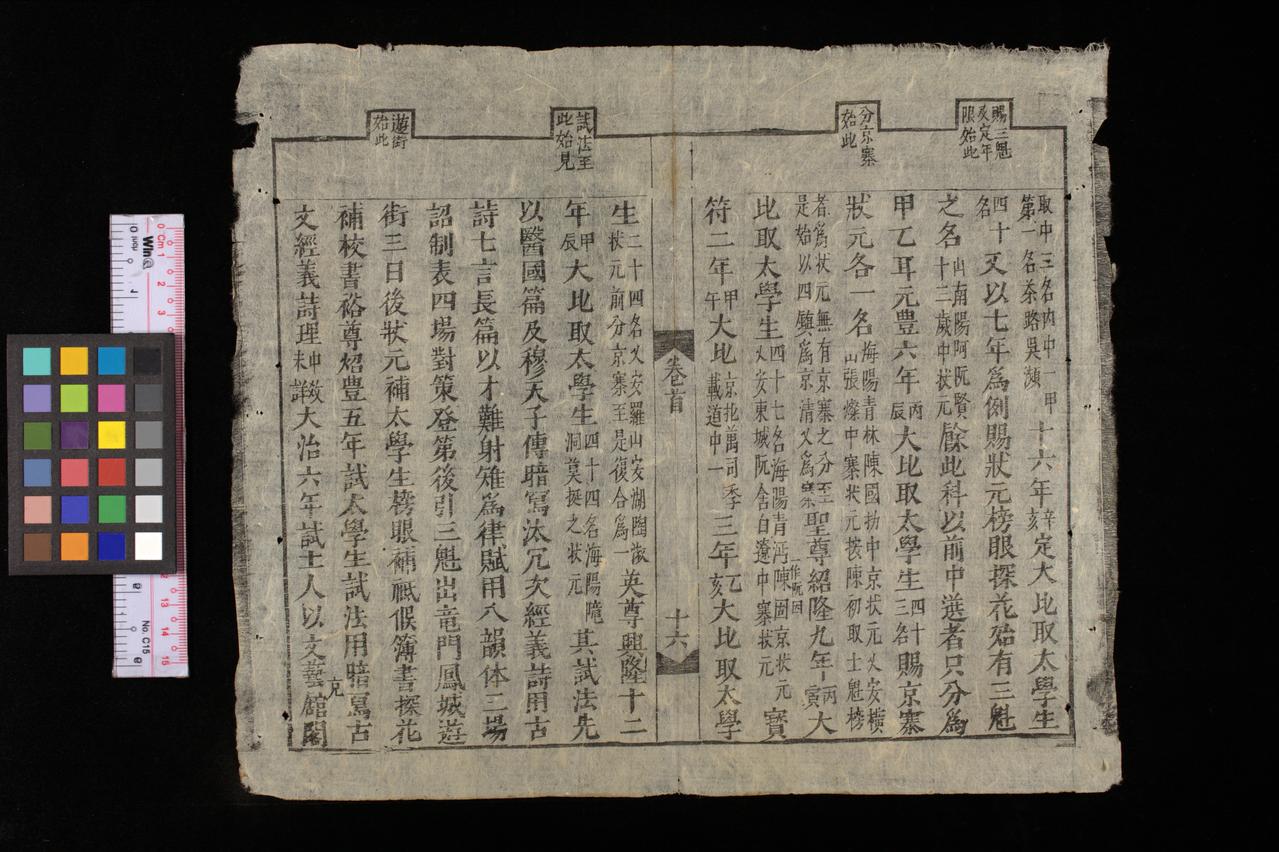 賜三魁
及定年
限始此
分京寨
始此
取中三名内中一甲
第一名茶路吳頻
十六年辛亥定大比取太學生
四十
名
又以七年爲例賜狀元榜眼探花始有三魁
之名山南陽阿阮賢
十三歲中狀元
餘此科以前中選者只分爲
甲乙耳元豊六年丙辰大比取太學生四十
三名賜京寨
狀元各一名海陽青林陳國扐中京狀元乂安橫
山張燦中寨狀元按陳初取士魁榜
者爲狀元無有京寨之分至
是始以四鎮爲京清乂爲寨
聖尊紹隆九年丙寅大
比取太學生四十七名海陽青沔陳固京狀元
乂安東城阮舍白遼中寨狀元
寳
符二年甲午大比
三年乙亥大比取太學
卷首
十六
試法至
此始見
遊街
始此
生二十四名乂安羅山安湖陶淑
狀元前分京寨至是復合爲一
英尊興隆十二
年甲辰大比取太學生四十四名海陽
洞莫挺之狀元
其試法先
以醫國篇及穆天子傳暗寫汰冗次經義詩用古
詩七言長篇以才難射雉爲律賦用八韻体三場
詔制表四場對策登第後引三魁出竜門鳳城遊
街三日後狀元補太學生榜眼補祗候簿書探花
補校書裕尊炤豊五年試太學生試法用暗寫古
文經義詩理
大治六年試士人以文藝館閣
克